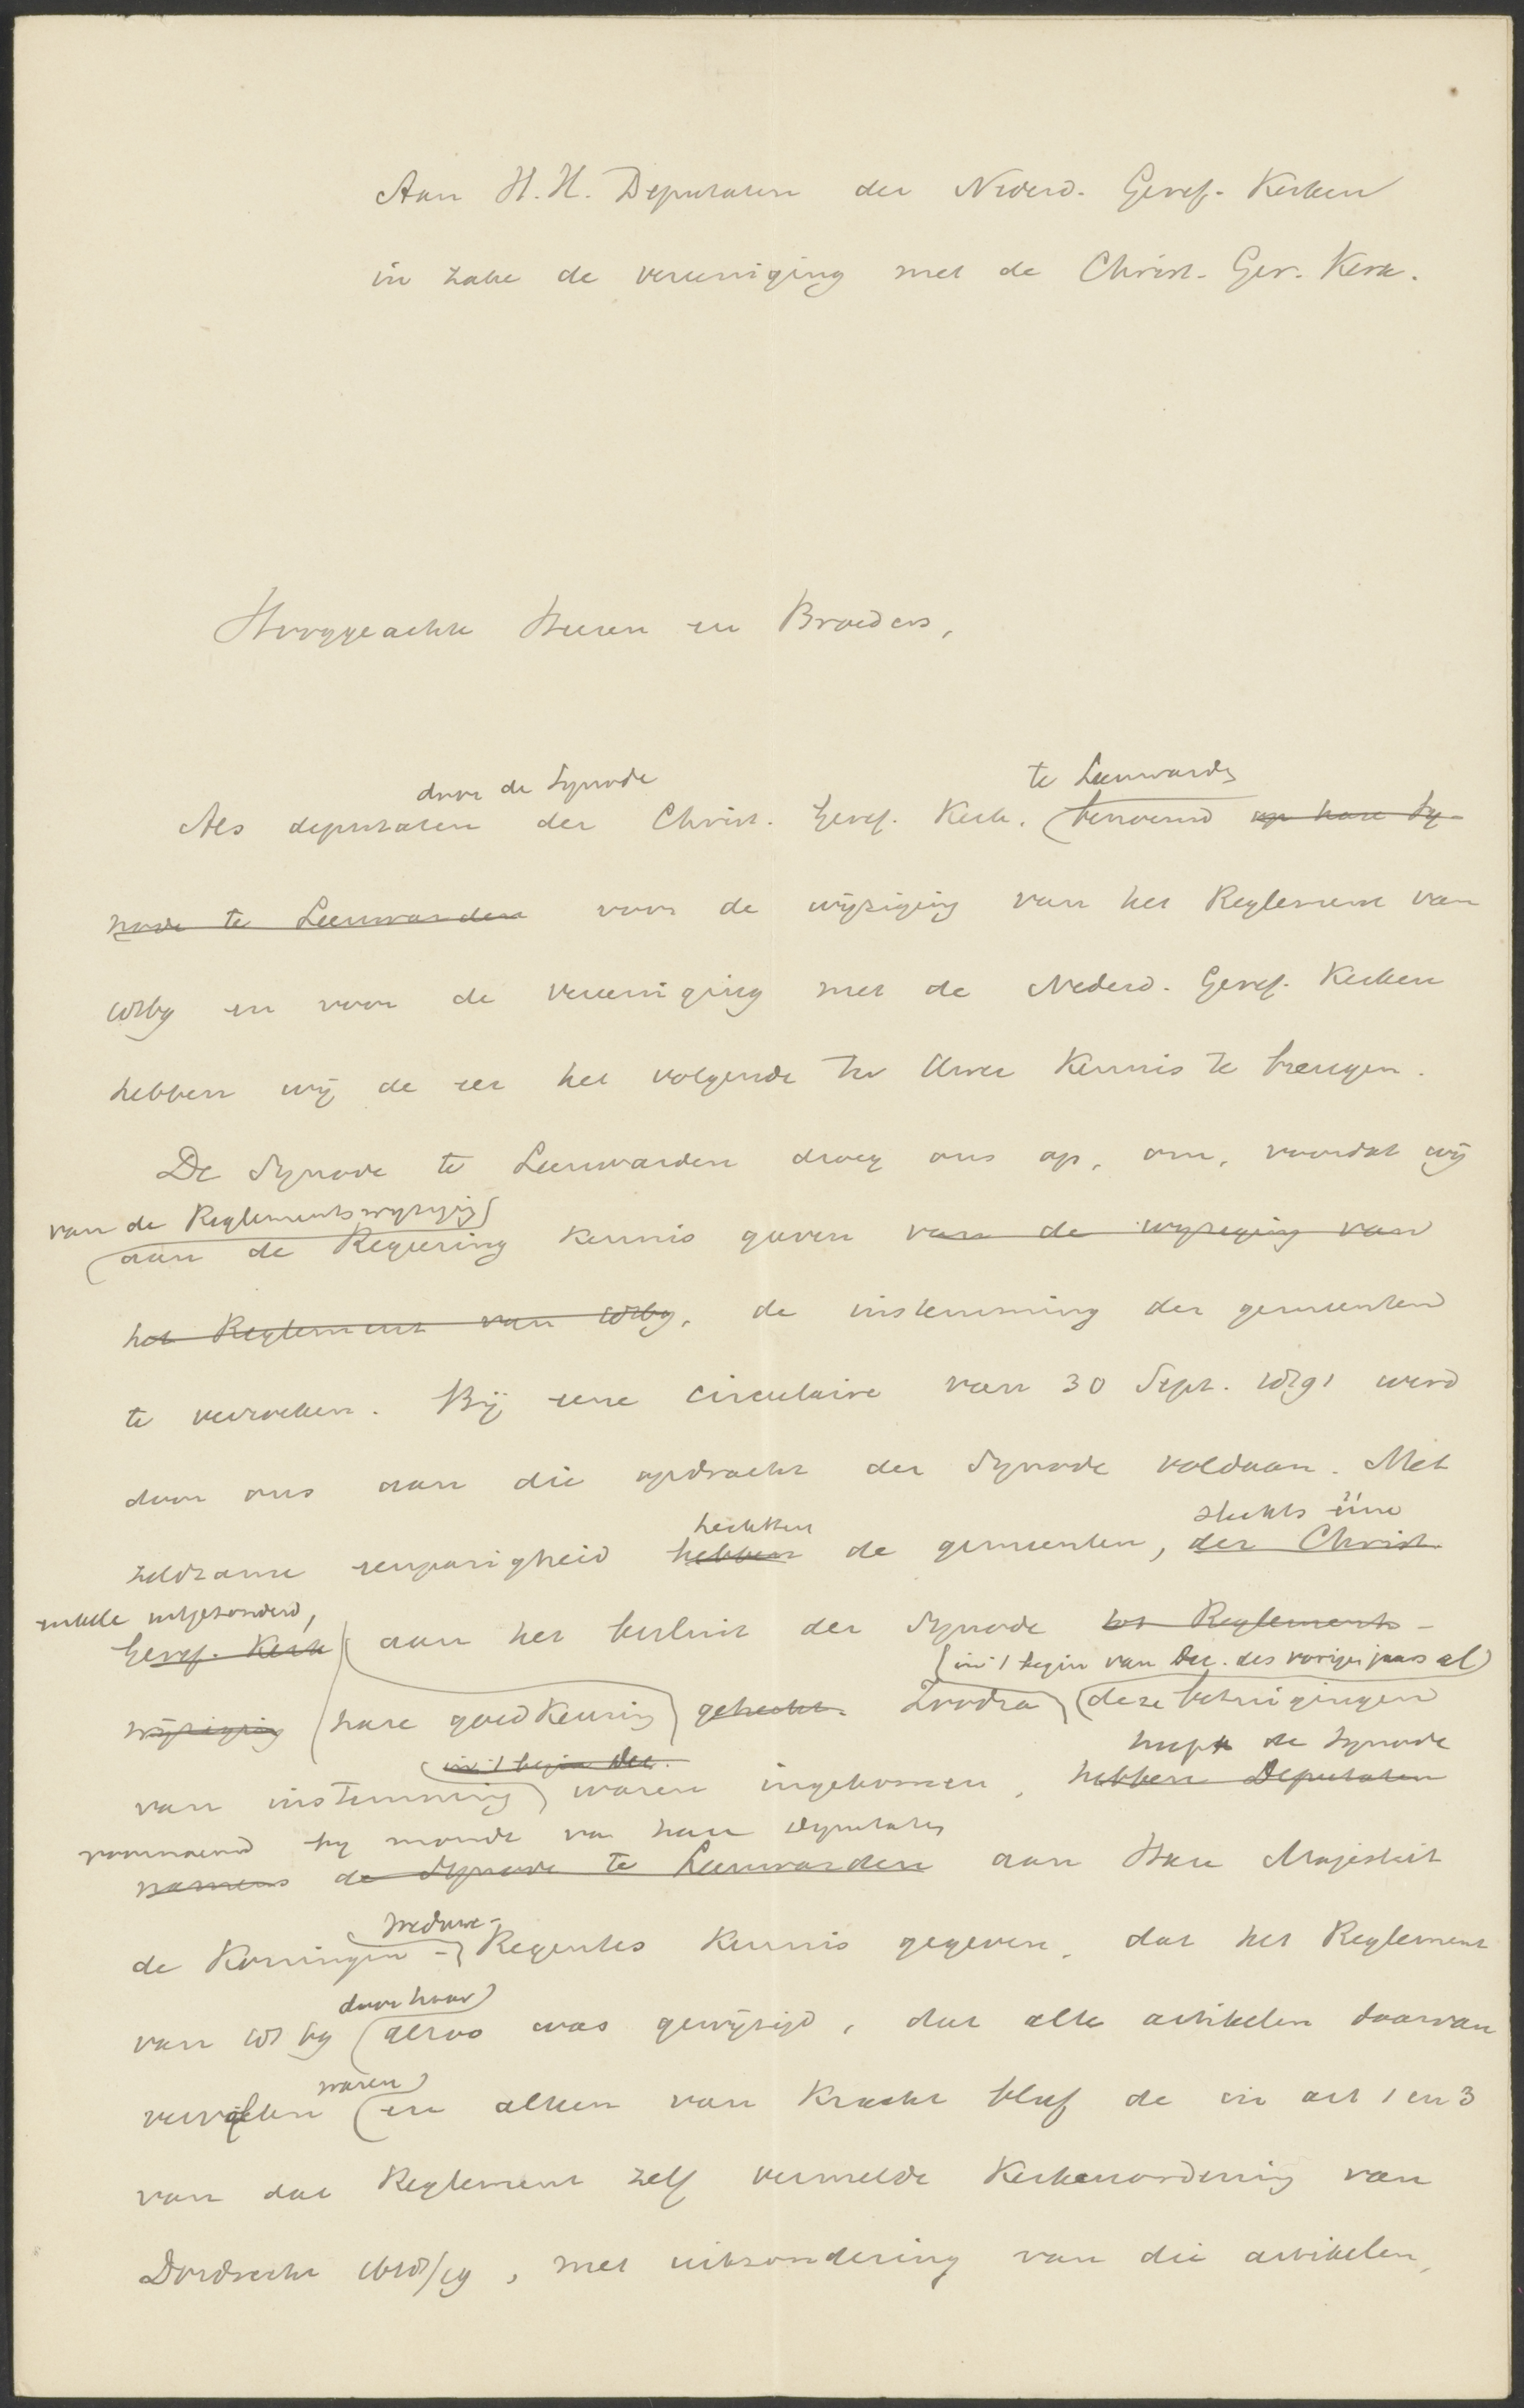 Aan H.H. Deputaten der Nederd. Geref. Kerken
in zake de vereeniging met de Christ. Ger. Kerk.
Hooggeachte Heeren en Broeders,
door de Synode te Leeuwarden
Als deputaten der Christ. Geref. Kerk. benoemd op hare Sy-
node te Leeuwarden voor de wijziging van het Reglement van
1869 en voor de vereeniging met de Nederd. Geref. Kerken
hebben wij de eer het volgende ter Uwer kennis te brengen.
De Synode te Leeuwarden droeg ons op, om, voordat wij
van de Reglementswijziging
aan de Regeering kennis gaven van de wijziging van
het Reglement van 1869, de instemming der gemeenten
te verzoeken. Bij eene circulaire van 30 Sept. 1891 werd
door ons aan die opdracht der Synode voldaan. Met
hechtten slechts ééne
zeldzame eenparigheid hebben de gemeenten, der Christ.
enkele uitgezonderd,
Geref. Kerk aan het besluit der Synode tot Reglements-
in 't begin van Dec. des vorigen jaars al
wijziging hare goedkeuring gehecht. Zoodra deze betuigingen
in 't begin Dec. heeft de Synode
van instemming waren ingekomen, hebben Deputaten
voornoemd bij monde van hare deputaten
namens de Synode te Leeuwarden aan Hare Majesteit
Weduwe-
de Koningin-Regentes kennis gegeven, dat het Reglement
door haar
van 1869 alzoo was gewijzigd, dat alle artikelen daarvan
waren
vervallen en alleen van kracht bleef de in art 1 en 3
van dat Reglement zelf vermelde Kerkenordening van
Dordrecht 1618/19, met uitzondering van die artikelen,